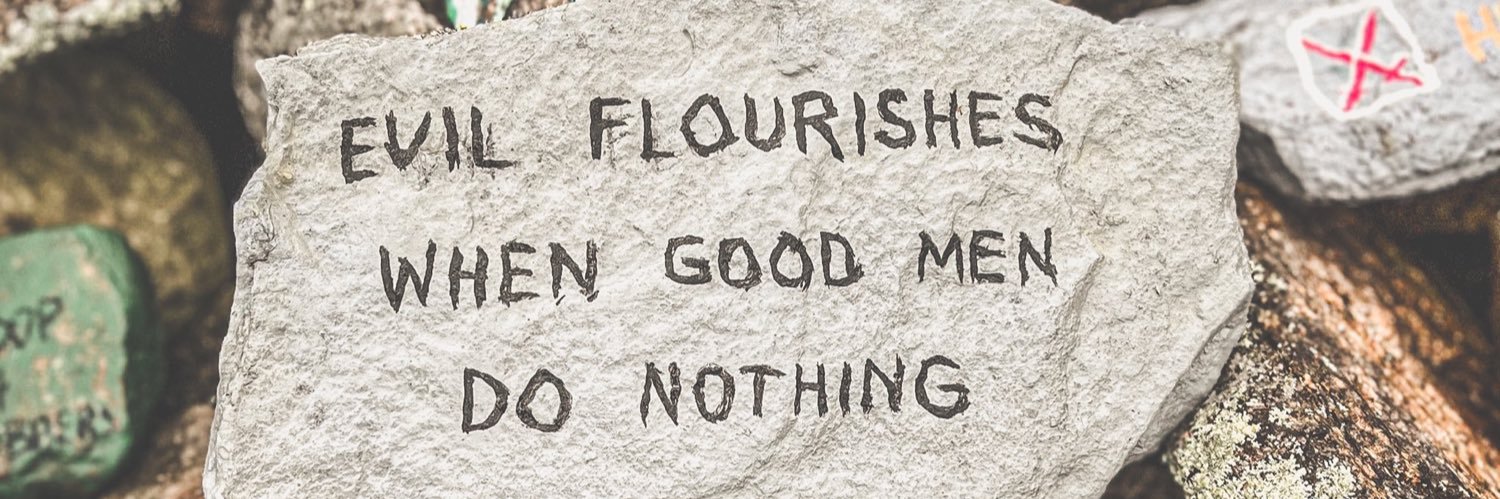 EVIL FLOURISHES
WHEN GOOD MEN
DO NOTHING